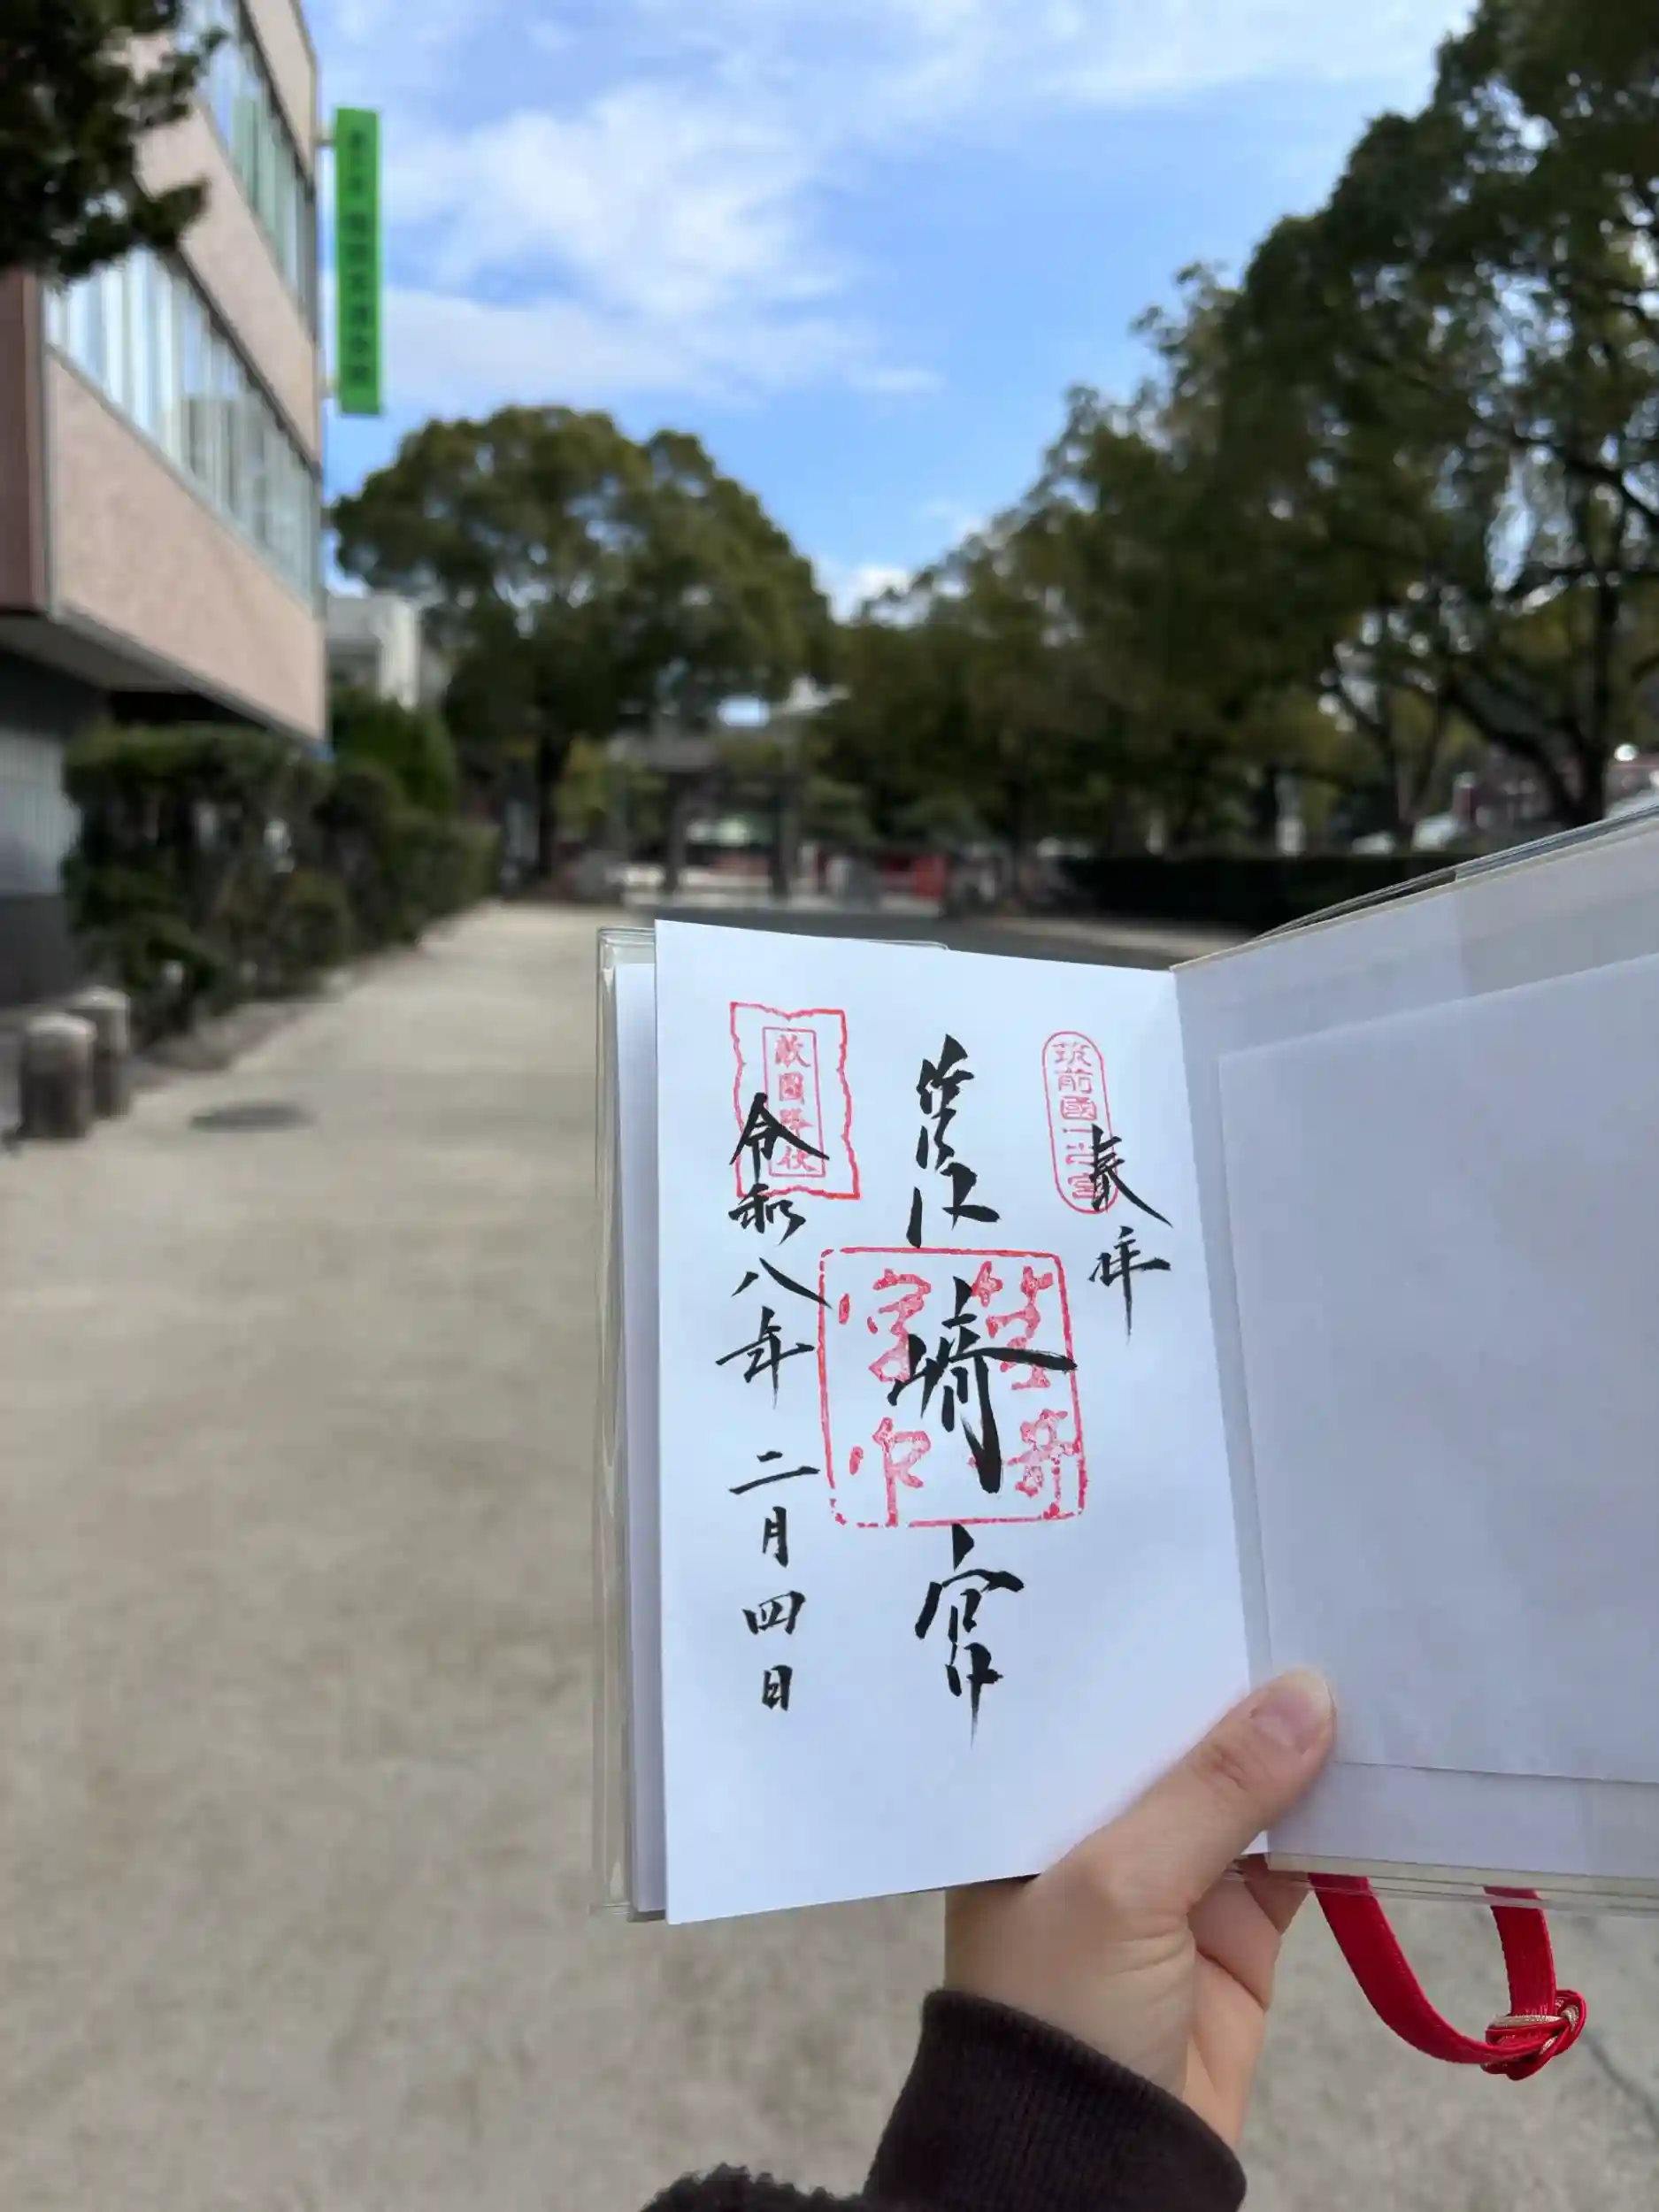 筑前國一之宮
奉拝
筥崎宮
筥崎宮印
敵國降伏
令和八年二月四日